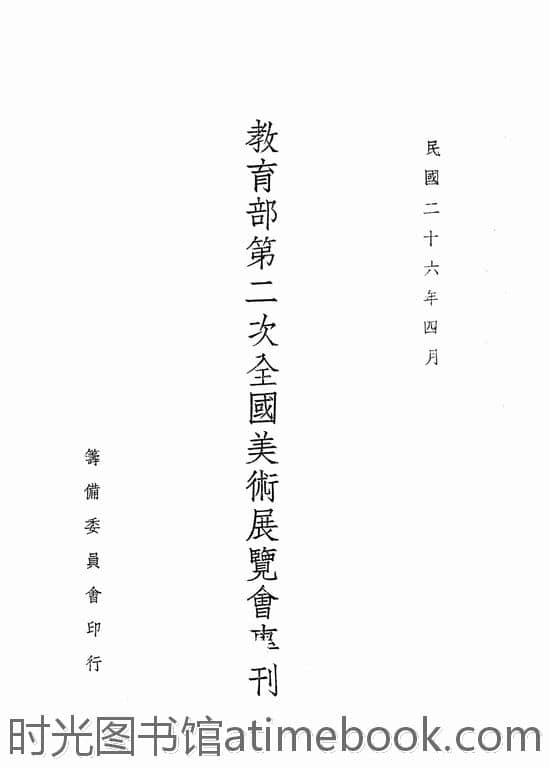 民國二十六年四月
教育部第二次全國美術展覽會專刊
籌備委員會印行
时光图书馆atimebook.com